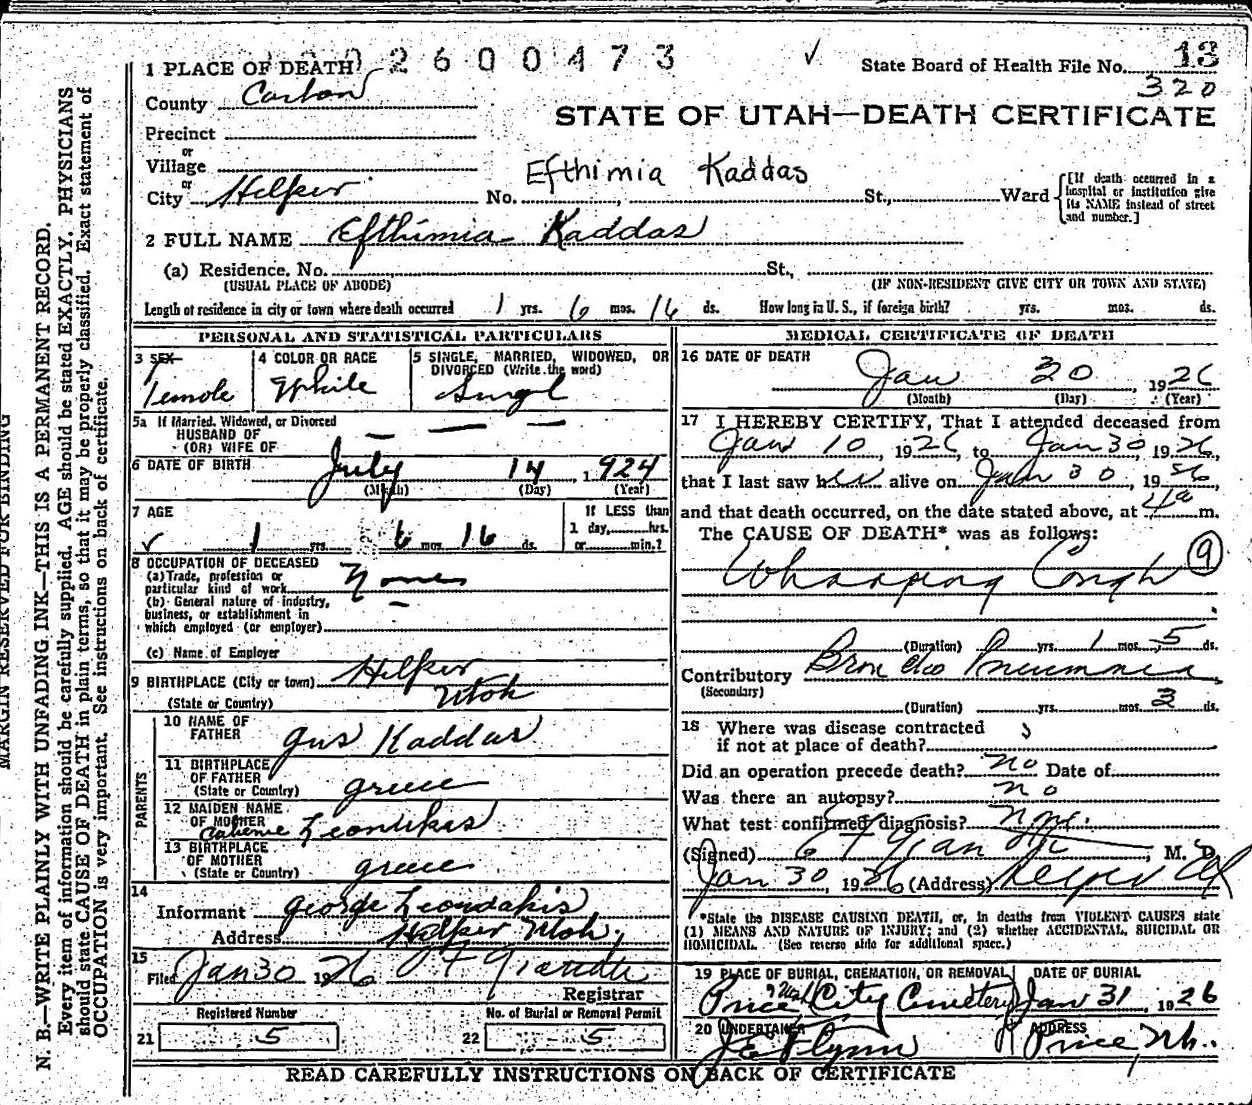 1 PLACE OF DEATH 2600473 ✓ State Board of Health File No. 13
320
County Carbon
STATE OF UTAH—DEATH CERTIFICATE
Precinct
or
Village
or
City Helper No. Efthimia Kaddas St., Ward [If death occurred in a hospital or institution give its NAME instead of street and number.]
2 FULL NAME Efthimia Kaddas
(a) Residence. No. St.,
(USUAL PLACE OF ABODE) (IF NON-RESIDENT GIVE CITY OR TOWN AND STATE)
Length of residence in city or town where death occurred 1 yrs. 6 mos. 16 ds. How long in U. S., if foreign birth? yrs. mos. ds.
PERSONAL AND STATISTICAL PARTICULARS
3 SEX
Female
4 COLOR OR RACE
White
5 SINGLE, MARRIED, WIDOWED, OR DIVORCED (Write the word)
Singl
5a If Married, Widowed, or Divorced
HUSBAND OF
(OR) WIFE OF — — —
6 DATE OF BIRTH July 14, 1924
(Month) (Day) (Year)
7 AGE
✓ 1 yrs. 6 mos. 16 ds.
If LESS than
1 day, hrs.
or min.?
8 OCCUPATION OF DECEASED
(a) Trade, profession or
particular kind of work None
(b) General nature of industry,
business, or establishment in
which employed (or employer) —
(c) Name of Employer
9 BIRTHPLACE (City or town) Helper
(State or Country) Utah
PARENTS
10 NAME OF
FATHER Gus Kaddas
11 BIRTHPLACE
OF FATHER
(State or Country) Greece
12 MAIDEN NAME
OF MOTHER Leondakis
13 BIRTHPLACE
OF MOTHER
(State or Country) Greece
14
Informant George Leondakis
Address Helper Utah,
15
Filed Jan 30 1926
Registrar
Registered Number
21 5
No. of Burial or Removal Permit
22 5
MEDICAL CERTIFICATE OF DEATH
16 DATE OF DEATH
Jan 30, 1926
(Month) (Day) (Year)
17 I HEREBY CERTIFY, That I attended deceased from
Jan 10 1926, to Jan 30 1926,
that I last saw her alive on Jan 30, 1926
and that death occurred, on the date stated above, at 4a m.
The CAUSE OF DEATH* was as follows:
Whooping Cough 9
(Duration) yrs. 1 mos. 5 ds.
Contributory Broncho Pneumonia
(Secondary)
(Duration) yrs. mos. 3 ds.
18 Where was disease contracted
if not at place of death?
Did an operation precede death? No Date of
Was there an autopsy? no
What test confirmed diagnosis? None.
(Signed) M. D.
Jan 30, 1926 (Address) Helper Ut
*State the DISEASE CAUSING DEATH, or, in deaths from VIOLENT CAUSES state
(1) MEANS AND NATURE OF INJURY; and (2) whether ACCIDENTAL, SUICIDAL OR
HOMICIDAL. (See reverse side for additional space.)
19 PLACE OF BURIAL, CREMATION, OR REMOVAL
Price City Cemetery
DATE OF BURIAL
Jan 31, 1926
20 UNDERTAKER
J E Flynn
ADDRESS
Price, Ut.
READ CAREFULLY INSTRUCTIONS ON BACK OF CERTIFICATE
MARGIN RESERVED FOR BINDING
N. B.—WRITE PLAINLY WITH UNFADING INK—THIS IS A PERMANENT RECORD.
Every item of information should be carefully supplied. AGE should be stated EXACTLY. PHYSICIANS
should state CAUSE OF DEATH in plain terms, so that it may be properly classified. Exact statement of
OCCUPATION is very important. See instructions on back of certificate.